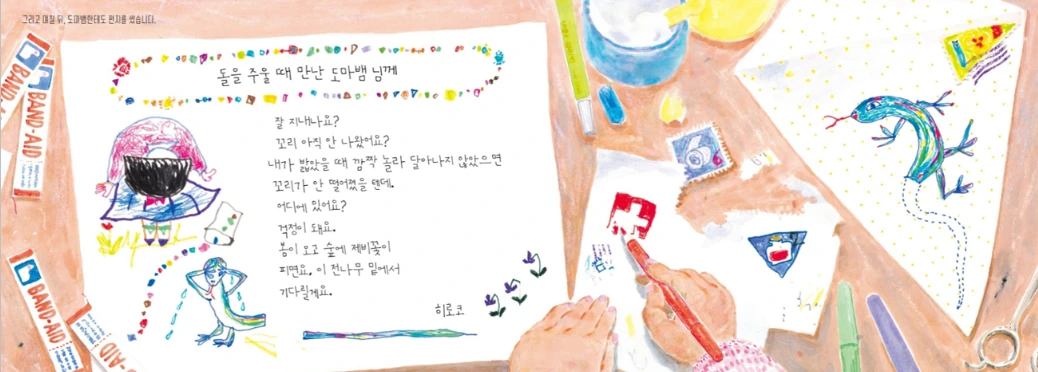 그리고 며칠 뒤, 도마뱀한테도 편지를 썼습니다.
돌을 주울 때 만난 도마뱀 님께
잘 지내나요?
꼬리 아직 안 나왔어요?
내가 밟았을 때 깜짝 놀라 달아나지 않았으면
꼬리가 안 떨어졌을 텐데.
어디에 있어요?
걱정이 돼요.
봄이 오고 숲에 제비꽃이
피면요, 이 전나무 밑에서
기다릴게요.
히로코
BAND-AID
BAND-AID
BAND-AID
BAND-AID
6